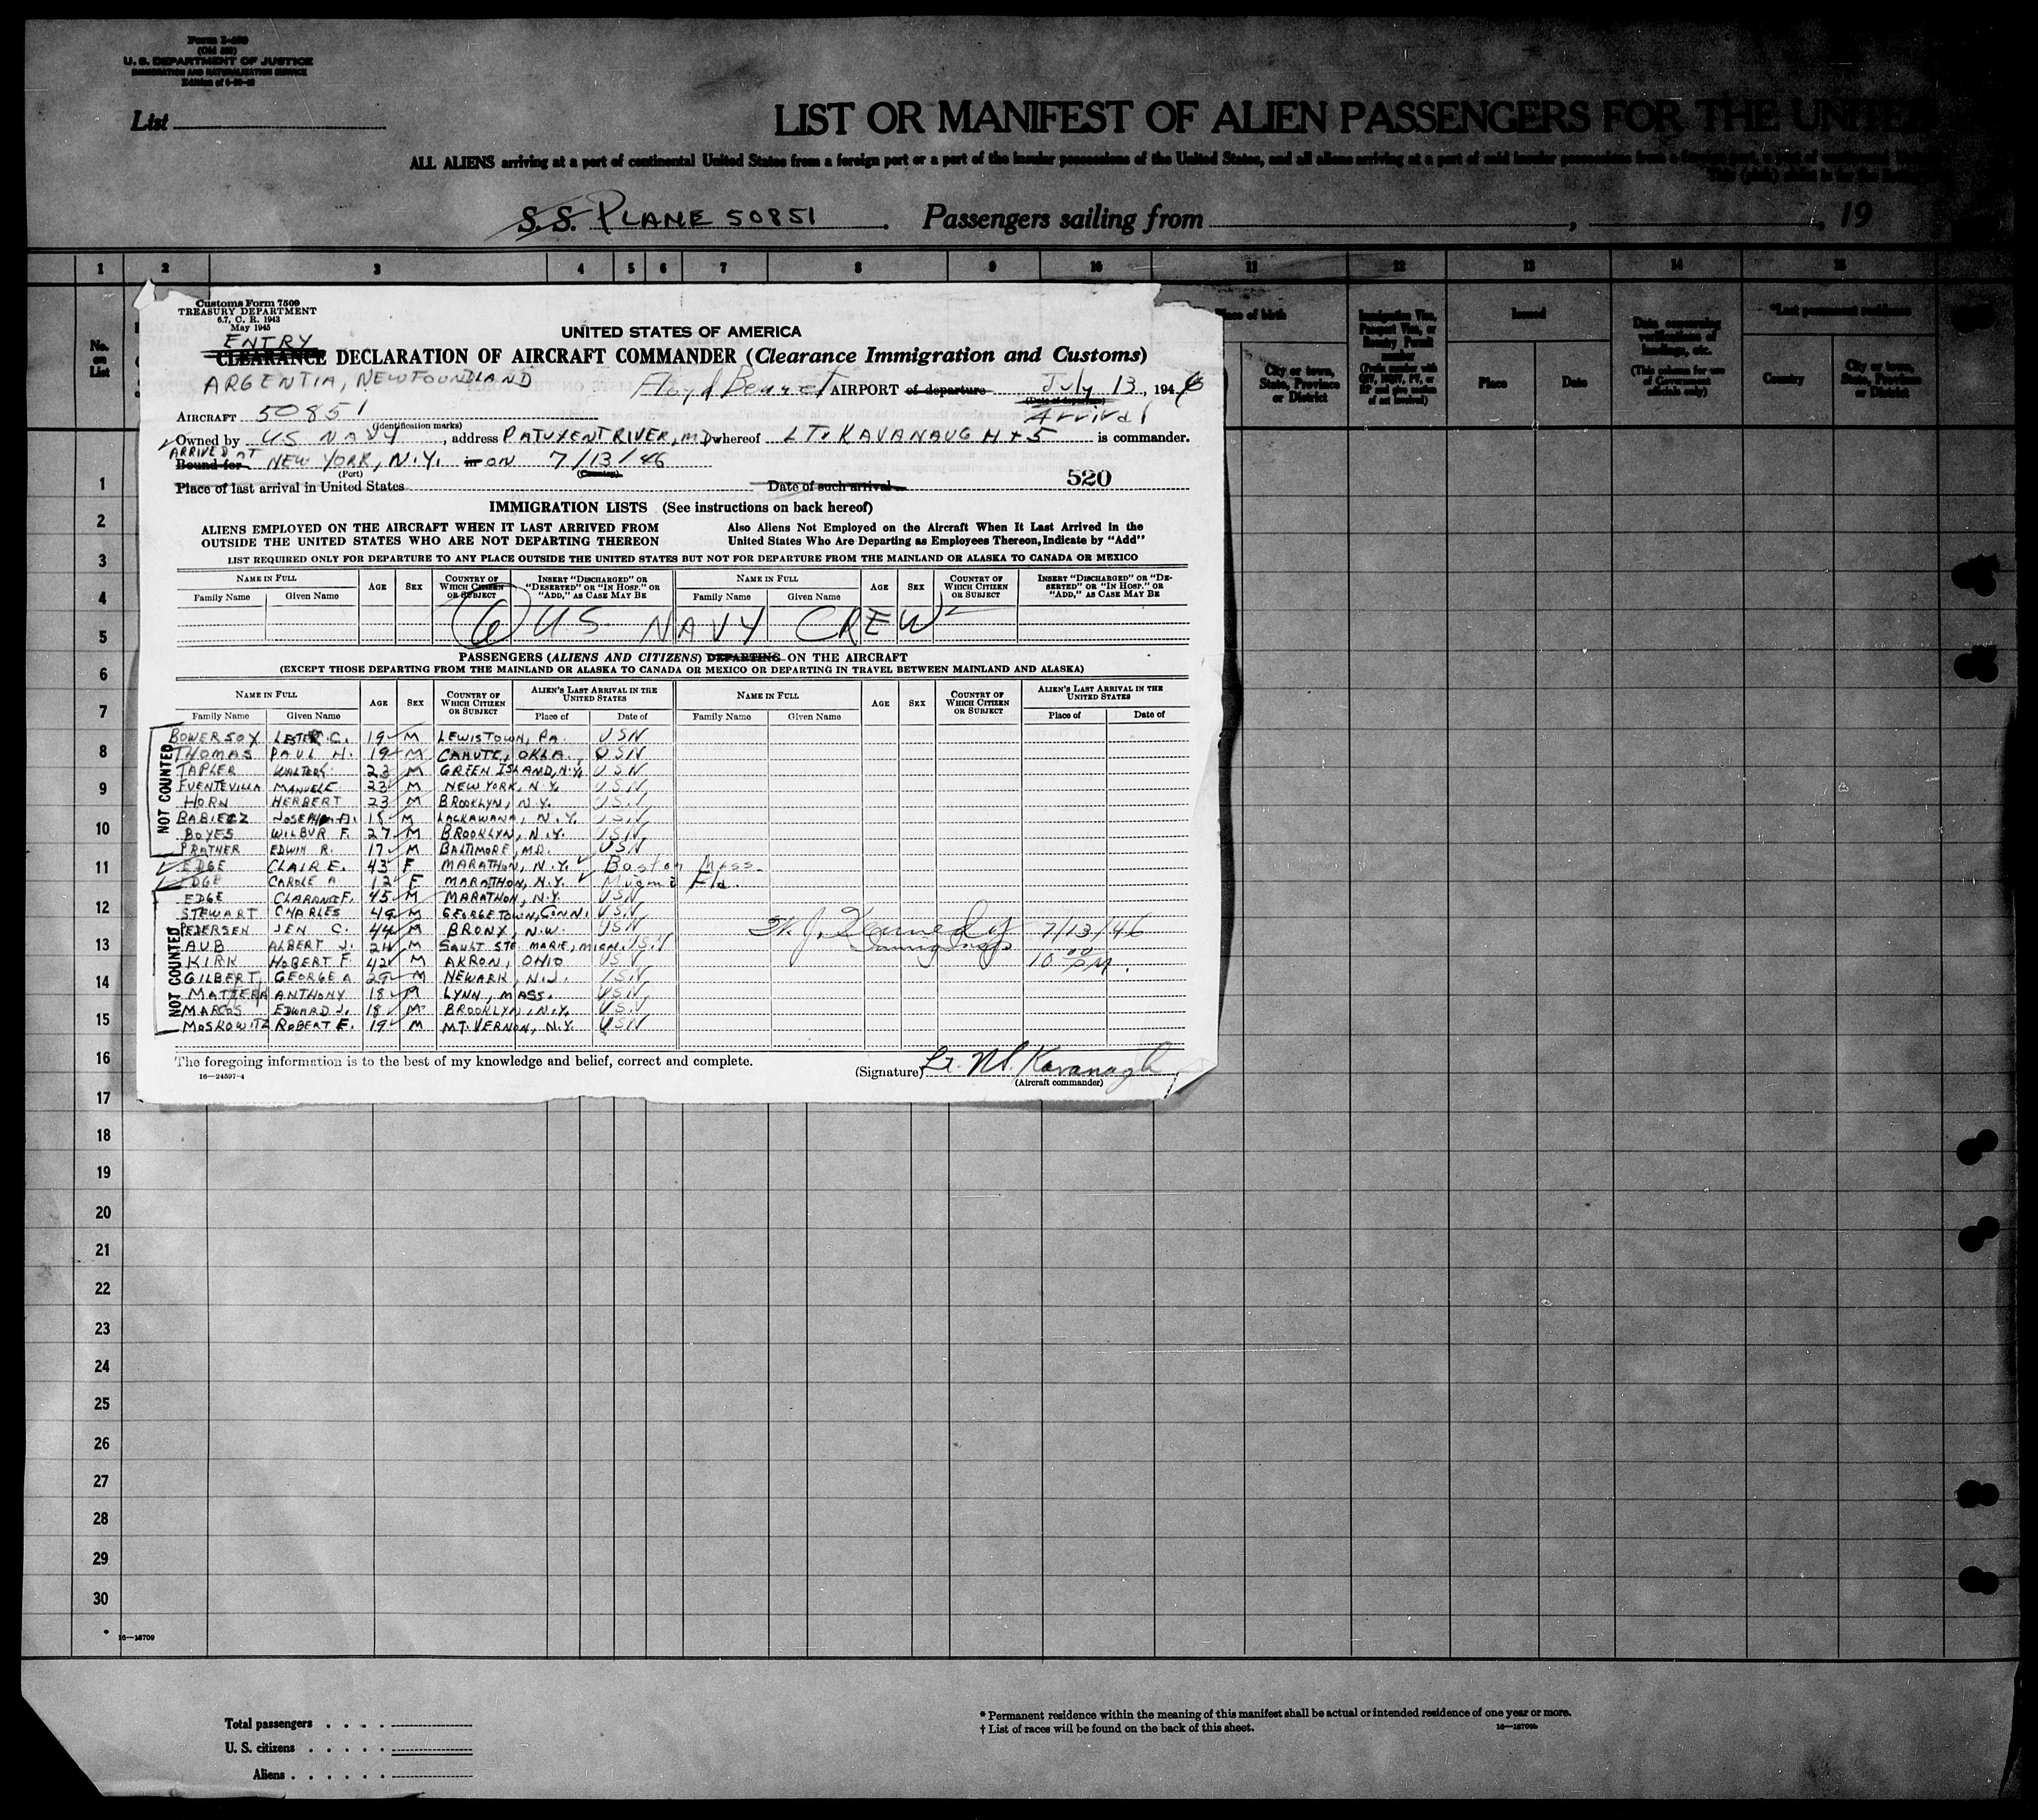 Form I-400
(Old 500)
U. S. DEPARTMENT OF JUSTICE
IMMIGRATION AND NATURALIZATION SERVICE
List
LIST OR MANIFEST OF ALIEN PASSENGERS FOR THE UNITED
ALL ALIENS arriving at a port of continental United States from a foreign port or a port of the insular possessions of the United States, and all aliens arriving at a port of said insular possessions from a foreign port, a port of continental
S.S. PLANE 50851. Passengers sailing from , , 19
1 2 3 4 5 6 7 8 9 10 11 12 13 14 15
No. on List
Place of birth
City or town, State, Province or District
Issued
Place Date
Date concerning verifications of landings, etc.
(This column for use of Government officials only)
*Last permanent residence
Country
City or town, State, Province or District
Customs Form 7509
TREASURY DEPARTMENT
6.7, C. R. 1943
May 1945
UNITED STATES OF AMERICA
ENTRY
CLEARANCE DECLARATION OF AIRCRAFT COMMANDER (Clearance Immigration and Customs)
ARGENTIA, NEWFOUNDLAND Floyd Bennet AIRPORT of departure July 13, 1946
(Date of departure)
Arrival
AIRCRAFT 50851
(Identification marks)
Owned by US NAVY, address PATUXENT RIVER, MD whereof LT. KAVANAUGH + 5 is commander.
ARRIVED AT
Bound for NEW YORK, N.Y. in ON 7/13/46
(Port) (Country)
520
Place of last arrival in United States Date of such arrival
IMMIGRATION LISTS (See instructions on back hereof)
ALIENS EMPLOYED ON THE AIRCRAFT WHEN IT LAST ARRIVED FROM OUTSIDE THE UNITED STATES WHO ARE NOT DEPARTING THEREON
Also Aliens Not Employed on the Aircraft When It Last Arrived in the United States Who Are Departing as Employees Thereon, Indicate by "Add"
LIST REQUIRED ONLY FOR DEPARTURE TO ANY PLACE OUTSIDE THE UNITED STATES BUT NOT FOR DEPARTURE FROM THE MAINLAND OR ALASKA TO CANADA OR MEXICO
NAME IN FULL AGE SEX COUNTRY OF WHICH CITIZEN OR SUBJECT INSERT "DISCHARGED" OR "DESERTED" OR "IN HOSP." OR "ADD," AS CASE MAY BE NAME IN FULL AGE SEX COUNTRY OF WHICH CITIZEN OR SUBJECT INSERT "DISCHARGED" OR "DESERTED" OR "IN HOSP." OR "ADD," AS CASE MAY BE
Family Name Given Name Family Name Given Name
6 US NAVY CREW
PASSENGERS (ALIENS AND CITIZENS) DEPARTING ON THE AIRCRAFT
(EXCEPT THOSE DEPARTING FROM THE MAINLAND OR ALASKA TO CANADA OR MEXICO OR DEPARTING IN TRAVEL BETWEEN MAINLAND AND ALASKA)
NAME IN FULL AGE SEX COUNTRY OF WHICH CITIZEN OR SUBJECT ALIEN'S LAST ARRIVAL IN THE UNITED STATES NAME IN FULL AGE SEX COUNTRY OF WHICH CITIZEN OR SUBJECT ALIEN'S LAST ARRIVAL IN THE UNITED STATES
Family Name Given Name Place of Date of Family Name Given Name Place of Date of
NOT COUNTED
BOWERSOX LESTER C. 19 M LEWISTOWN, PA. USN
THOMAS PAUL H. 19 M CAHUTE, OKLA. USN
TAPLER WALTER 23 M GREEN ISLAND, N.Y. USN
FUENTEVILLA MANUEL 23 M NEW YORK, N.Y. USN
HORN HERBERT 23 M BROOKLYN, N.Y. USN
BABIECZ JOSEPH A. 18 M LACKAWANA, N.Y. USN
BOYES WILBUR F. 27 M BROOKLYN, N.Y. USN
PRATHER EDWIN R. 17 M BALTIMORE, MD. USN
EDGE CLAIR E. 43 F MARATHON, N.Y. Boston Mass.
EDGE CAROLE A 12 F MARATHON, N.Y. Fla.
NOT COUNTED
EDGE CLARANCE F. 45 M MARATHON, N.Y. USN
STEWART CHARLES 49 M GEORGETOWN, CONN. USN
PEDERSEN JEN C. 44 M BRONX, N.W. USN
AUB ALBERT J. 24 M SAULT STE. MARIE, MICH. USN
KIRK HOBERT F. 42 M AKRON, OHIO USN
GILBERT GEORGE A 29 M NEWARK, N.J. USN
MATTERA ANTHONY 18 M LYNN, MASS. USN
MARCOS EDWARD J. 18 M BROOKLYN, N.Y. USN
MOSKOWITZ ROBERT E. 19 M MT. VERNON, N.Y. USN
J. Kennedy 7/13/46
Immig Insp
10 00 PM.
The foregoing information is to the best of my knowledge and belief, correct and complete.
16—24597-4
(Signature) Lt. Kavanagh
(Aircraft commander)
1
2
3
4
5
6
7
8
9
10
11
12
13
14
15
16
17
18
19
20
21
22
23
24
25
26
27
28
29
30
16—18709
Total passengers
U. S. citizens
Aliens
* Permanent residence within the meaning of this manifest shall be actual or intended residence of one year or more.
† List of races will be found on the back of this sheet.